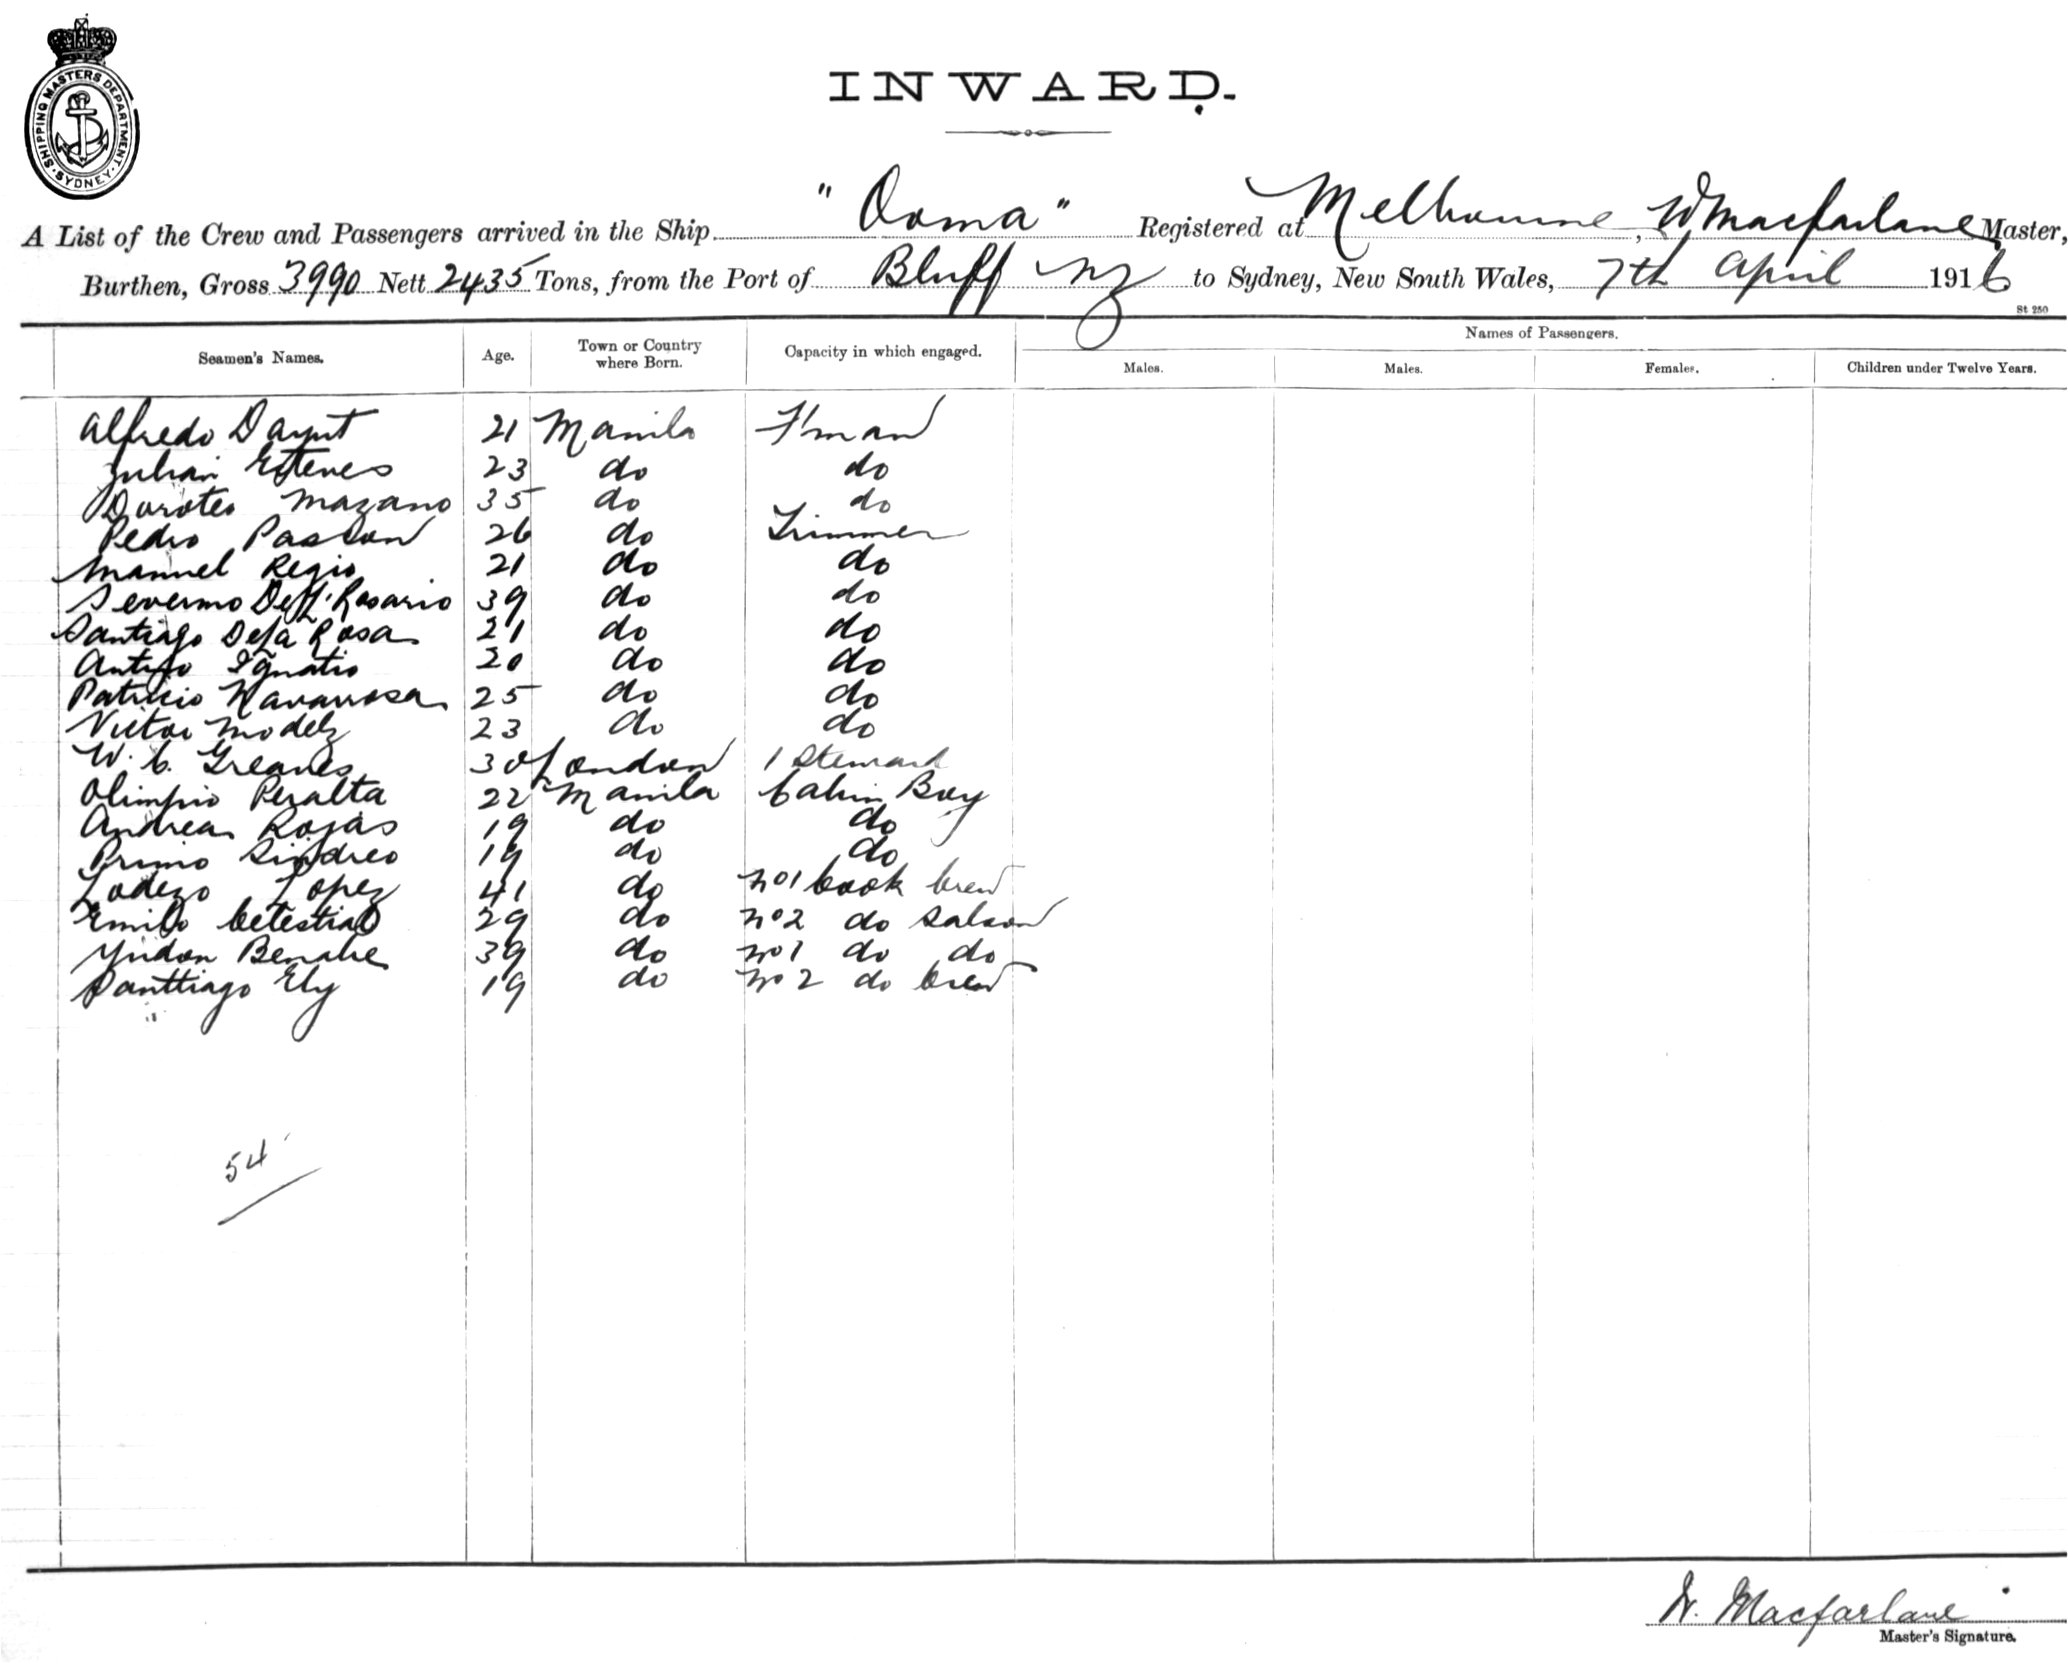 SHIPPING MASTERS DEPARTMENT. SYDNEY.
INWARD.
A List of the Crew and Passengers arrived in the Ship "Ooma" Registered at Melbourne, W Macfarlane Master,
Burthen, Gross 3990 Nett 2435 Tons, from the Port of Bluff NZ to Sydney, New South Wales, 7th April 1916
St 250
Seamen's Names. Age. Town or Country where Born. Capacity in which engaged. Names of Passengers.
Males. Males. Females. Children under Twelve Years.
Alfredo Dayut 21 Manila F'man
Julian Esteves 23 do do
Doroteo Mazano 35 do do
Pedro 26 do Trimmer
Manuel Regio 21 do do
Severino Rosario 39 do do
Santiago De La Rosa 21 do do
Ignatio 20 do do
Patricio Navarrosa 25 do do
Victor Modelz 23 do do
W. C. Greaves 30 London 1 Steward
Olimpio Peralta 22 Manila Cabin Boy
Andrea Rojas 19 do do
Primo Sindreo 19 do do
Lopez 41 do No 1 Cook Crew
Emilo Celestial 29 do No 2 do Saloon
39 do No 1 do do
Santtiago Ely 19 do No 2 do Crew
54
W. Macfarlane
Master's Signature.